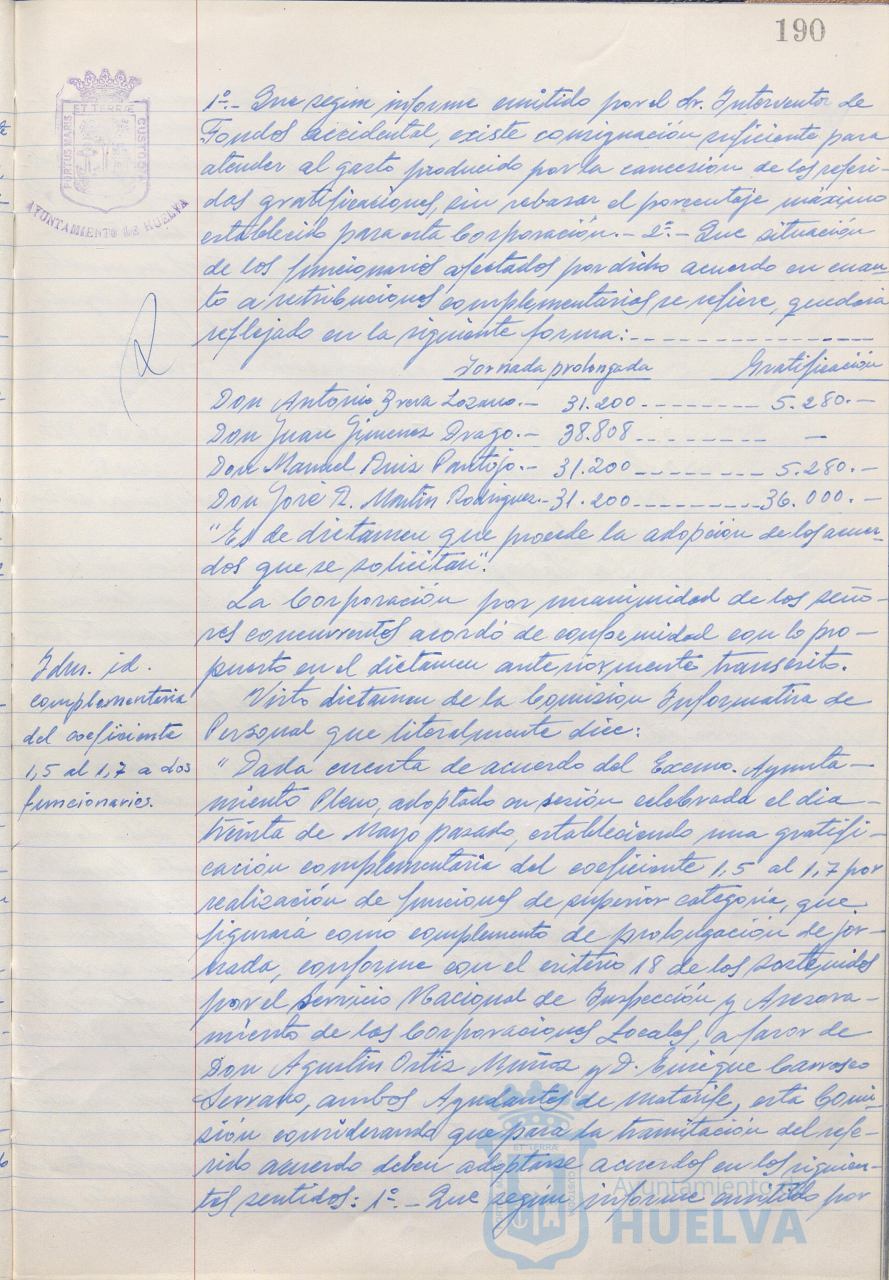 190
PORTUS MARIS
ET TERRÆ
CUSTODIA
AYUNTAMIENTO DE HUELVA
1º.- Que según informe emitido por el Sr. Interventor de
Fondos accidental, existe consignación suficiente para
atender al gasto producido por la concesión de los referi-
das gratificaciones, sin rebasar el porcentaje máximo
establecido para esta Corporación.- 2º.- Que situación
de los funcionarios afectados por dicho acuerdo en cuan-
to a retribuciones complementarias se refiere, quedará
reflejado en la siguiente forma:
Jornada prolongada Gratificación
Don Antonio Brera Lozano.- 31.200 5.280.-
Don Juan Gimenez Drago.- 38.808 —
Don Manuel Ruiz Pantoja.- 31.200 5.280.-
Don José R. Martín Rodriguez.- 31.200 36.000.-
"Es de dictamen que procede la adopción de los acuer-
dos que se solicitan".
La Corporación por unanimidad de los seño-
res concurrentes acordó de conformidad con lo pro-
puesto en el dictamen anteriormente transcrito.
Idm. id.
complementaria
del coeficiente
1,5 al 1,7 a dos
funcionarios.
Visto dictamen de la Comisión Informativa de
Personal que literalmente dice:
"Dada cuenta de acuerdo del Excmo. Ayunta-
miento Pleno, adoptado en sesión celebrada el dia
treinta de Mayo pasado, estableciendo una gratifi-
cación complementaria del coeficiente 1,5 al 1,7 por
realización de funciones de superior categoría, que
figurará como complemento de prolongación de jor-
nada, conforme con el criterio 18 de los sostenidos
por el Servicio Nacional de Inspección y Asesora-
miento de las Corporaciones Locales, a favor de
Don Agustín Ortiz Muñoz y D. Enrique Carrasco
Serrano, ambos Ayudantes de matarife, esta Comi-
sión considerando que para la tramitación del refe-
rido acuerdo deben adoptarse acuerdos en los siguien-
tes sentidos: 1º.- Que según informe emitido por
Ayuntamiento de
HUELVA